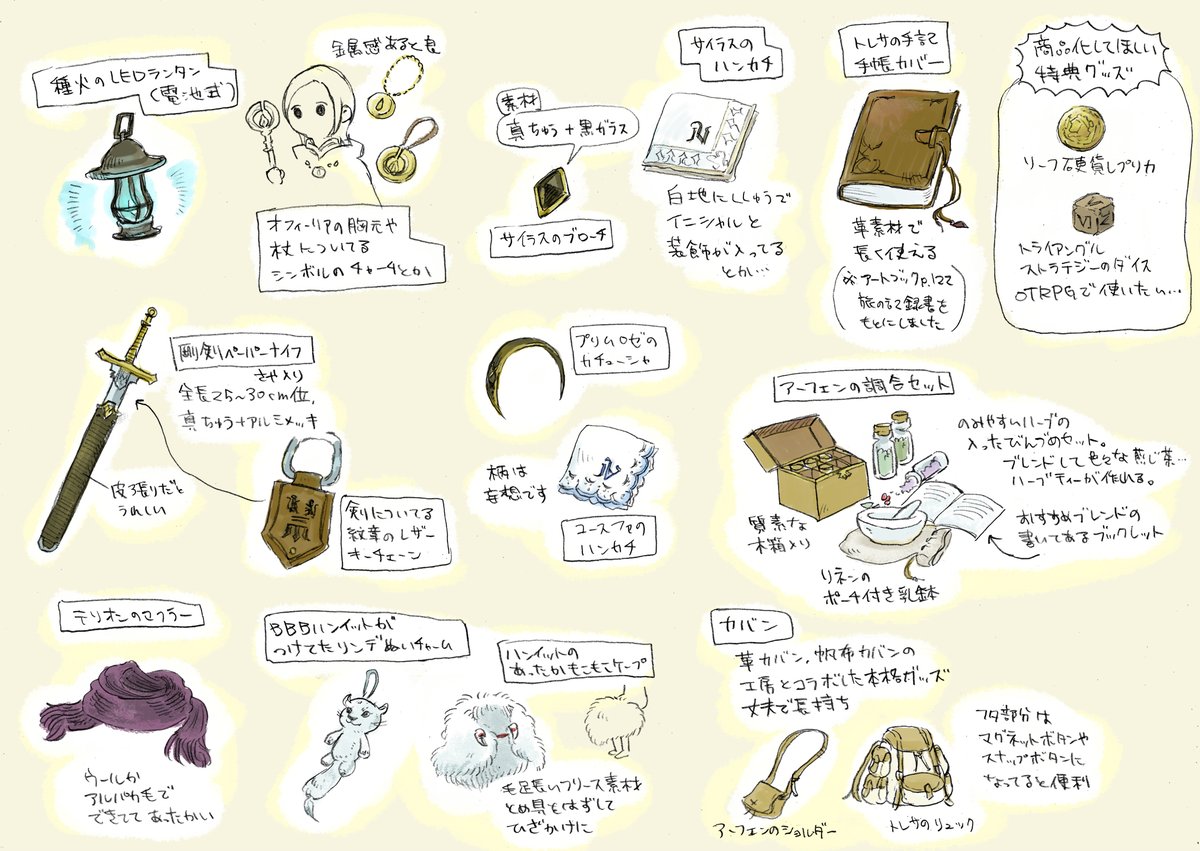 種火のLEDランタン
(電池式)
金属感あると良
オフィーリアの胸元や
杖についてる
シンボルのチャームとか
素材
真ちゅう+黒ガラス
サイラスのブローチ
サイラスの
ハンカチ
白地にししゅうで
イニシャルと
装飾が入ってる
とか…
トレサの手記
手帳カバー
革素材で
長く使える
アートブックp.122
旅の記録書を
もとにしました
商品化してほしい
特典グッズ
リーフ硬貨レプリカ
トライアングル
ストラテジーのダイス
OTRPGで使いたい…
剛剣ペーパーナイフ
さや入り
全長25~30cm位、
真ちゅう+アルミメッキ
皮張りだと
うれしい
剣についてる
紋章のレザー
キーチェーン
プリムロゼの
カチューシャ
柄は
妄想です
ユースファの
ハンカチ
アーフェンの調合セット
のみやすいハーブの
入ったびんづめセット。
ブレンドして色々な煎じ茶…
ハーブティーが作れる。
質素な
木箱入り
おすすめブレンドの
書いてあるブックレット
リネンの
ポーチ付き乳鉢
テリオンのマフラー
ウールか
アルパカ毛で
できてて あったかい
BBBハンイットが
つけてたリンデぬいチャーム
ハンイットの
あったかもこもこケープ
毛足長いフリース素材
とめ具をはずして
ひざかけに
カバン
革カバン、帆布カバンの
工房とコラボした本格グッズ
丈夫で長持ち
アーフェンのショルダー
トレサのリュック
フタ部分は
マグネットボタンや
スナップボタンに
なってると便利